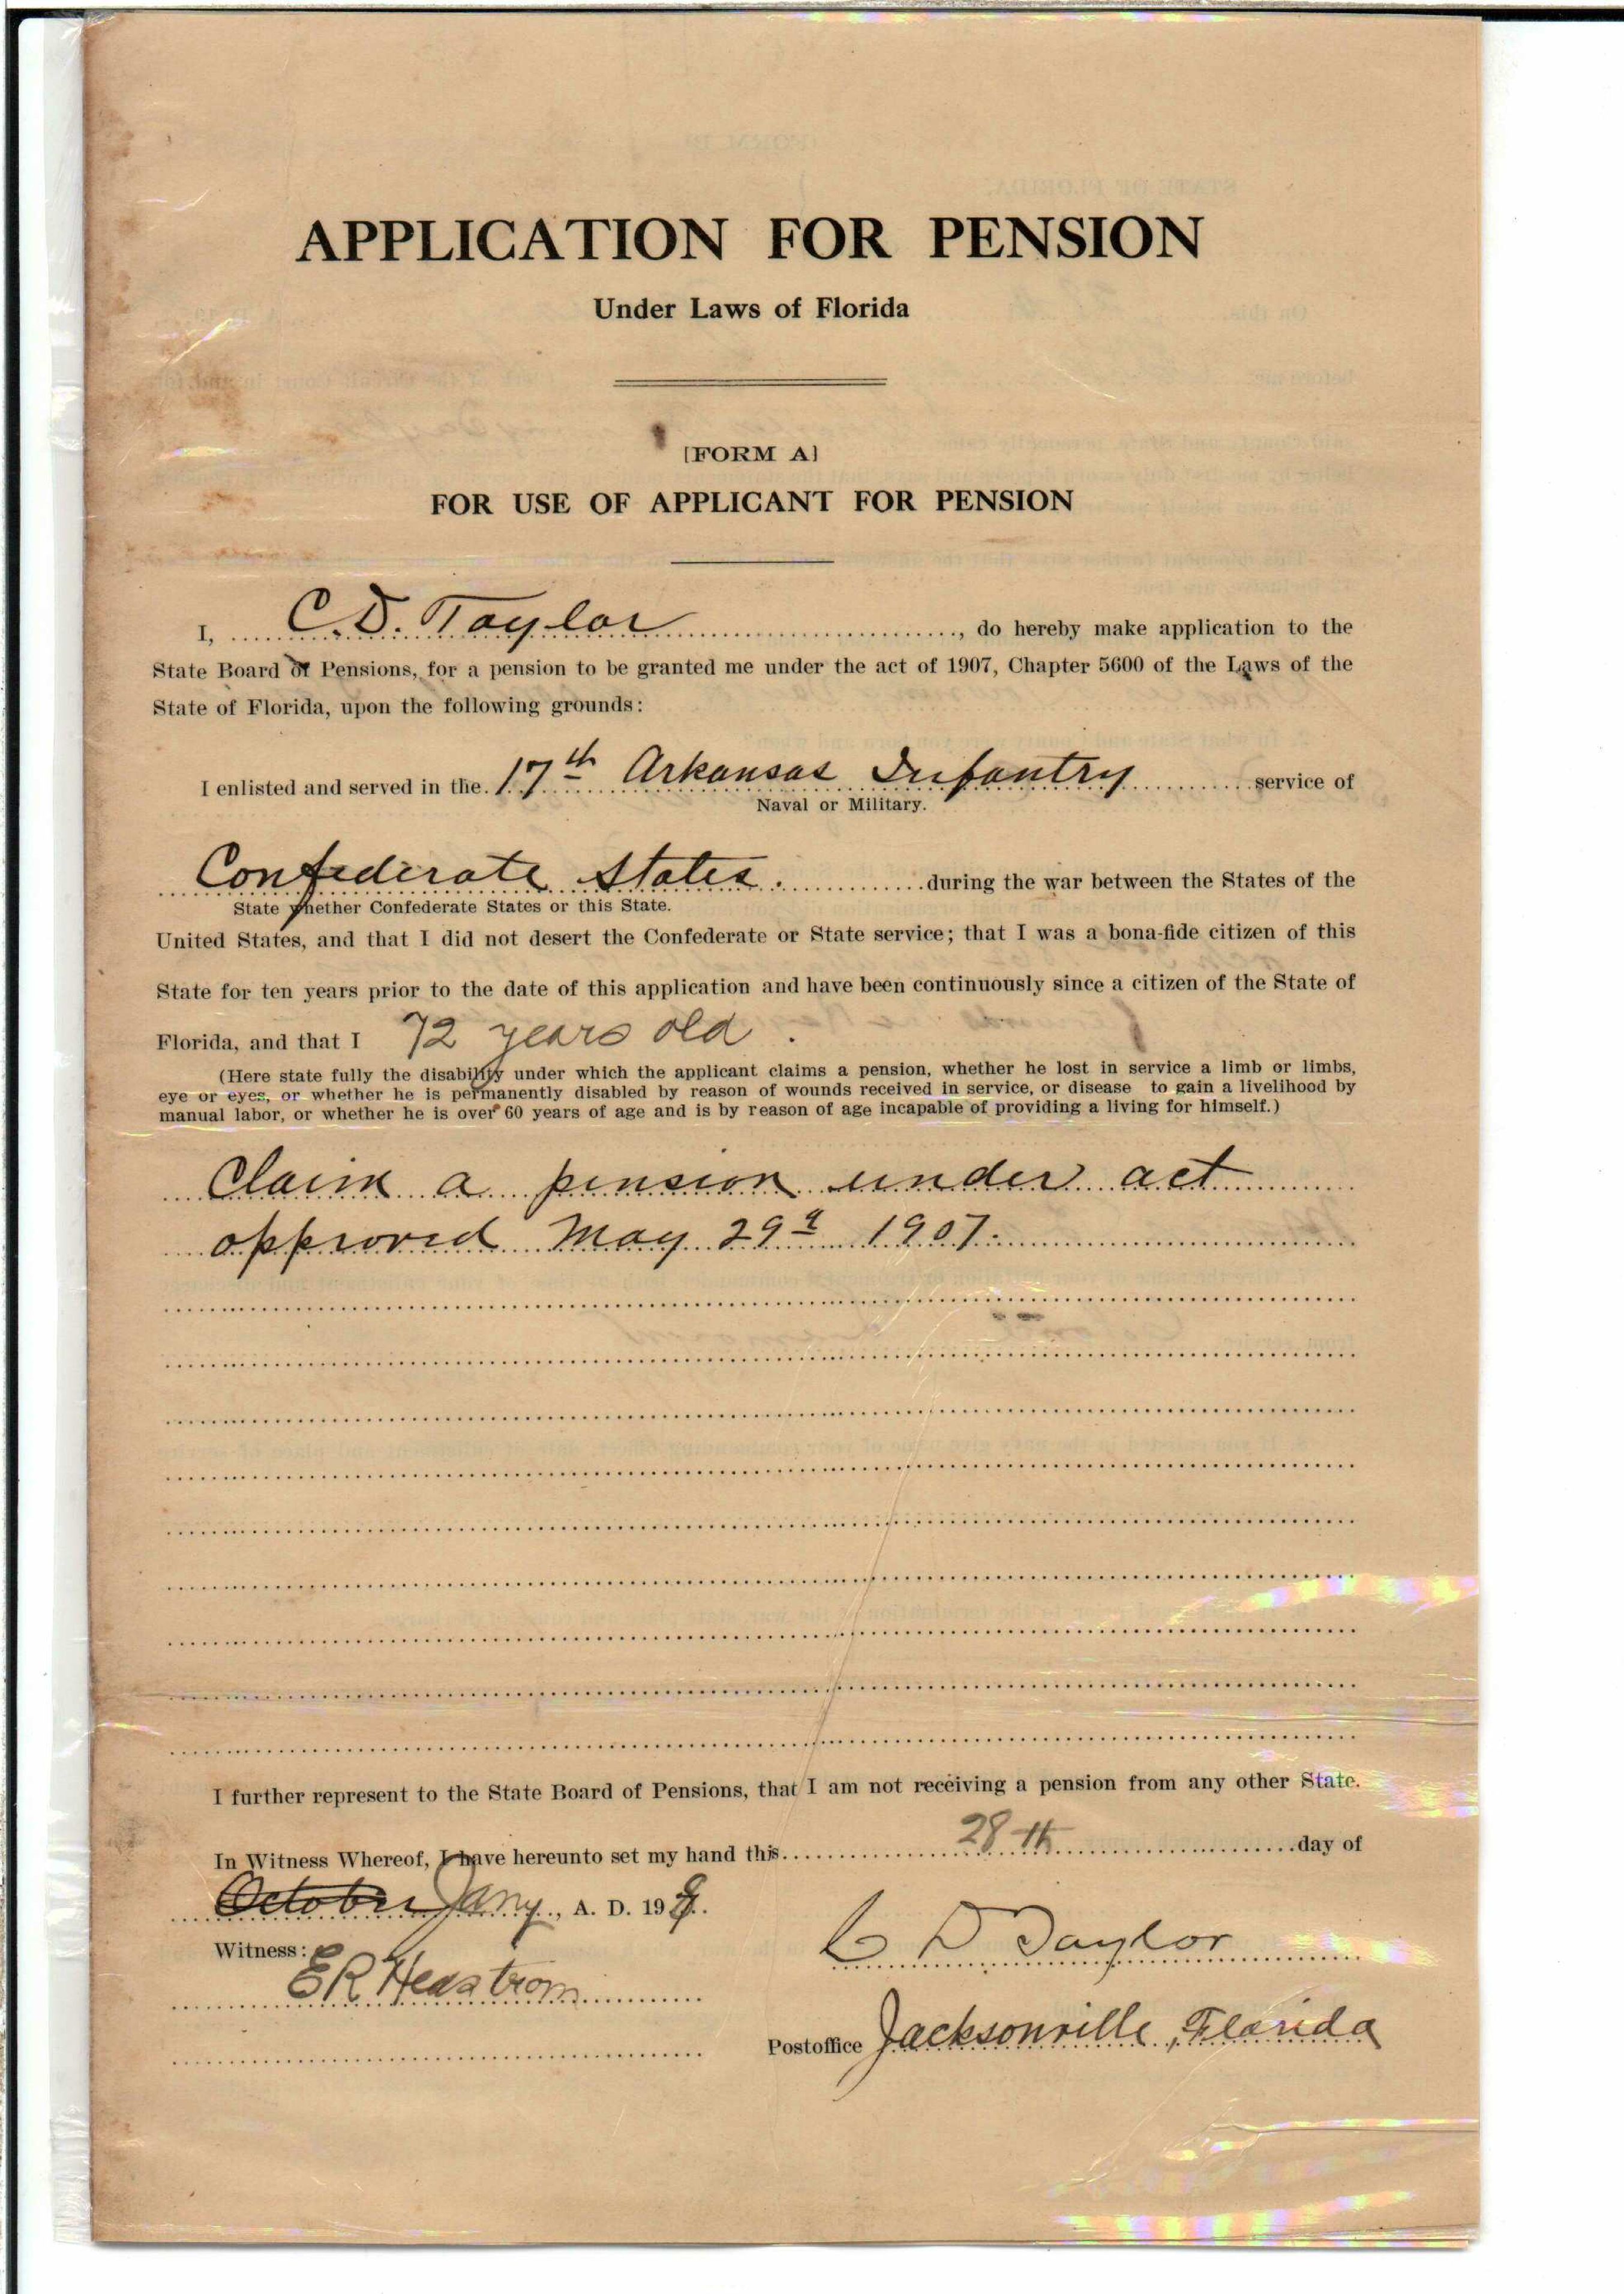 APPLICATION FOR PENSION
Under Laws of Florida
[FORM A]
FOR USE OF APPLICANT FOR PENSION
I, C. D. Taylor, do hereby make application to the
State Board of Pensions, for a pension to be granted me under the act of 1907, Chapter 5600 of the Laws of the
State of Florida, upon the following grounds:
I enlisted and served in the 17th Arkansas Infantry service of
Naval or Military.
Confederate States. during the war between the States of the
State whether Confederate States or this State.
United States, and that I did not desert the Confederate or State service; that I was a bona-fide citizen of this
State for ten years prior to the date of this application and have been continuously since a citizen of the State of
Florida, and that I 72 years old.
(Here state fully the disability under which the applicant claims a pension, whether he lost in service a limb or limbs,
eye or eyes, or whether he is permanently disabled by reason of wounds received in service, or disease to gain a livelihood by
manual labor, or whether he is over 60 years of age and is by reason of age incapable of providing a living for himself.)
Claim a pension under act
approved May 29th 1907.
I further represent to the State Board of Pensions, that I am not receiving a pension from any other State.
In Witness Whereof, I have hereunto set my hand this 28th day of
October Jany., A. D. 198.
Witness:
C D Taylor
E R Hedstrom
Postoffice Jacksonville, Florida